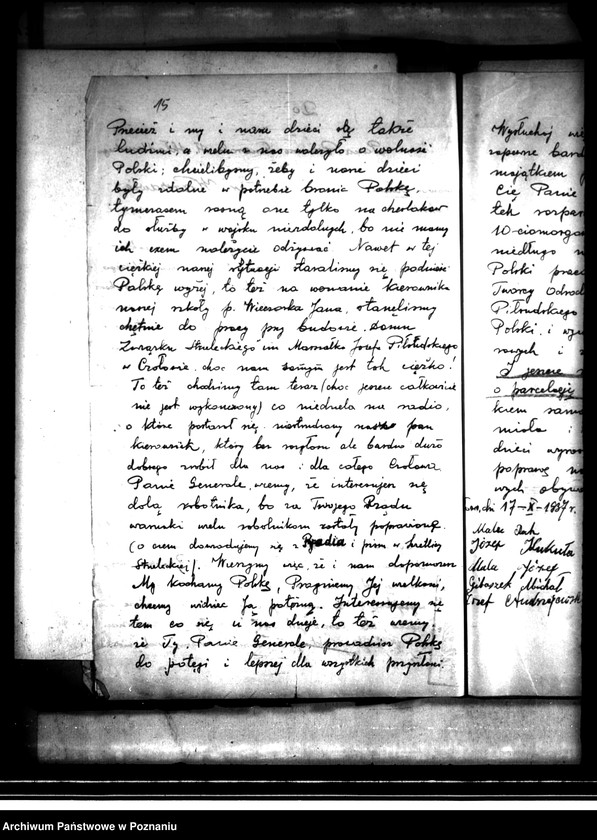 15
Przecież i my i nasze dzieci są także
ludźmi, a wielu z nas walczyło o wolność
Polski; chcielibyśmy, żeby i nasze dzieci
były zdolne w potrzebie bronić Polskę,
tymczasem rosną one tylko na cherlaków
do służby w wojsku niezdolnych, bo nie mamy
ich czem należycie odżywiać. Nawet w tej
ciężkiej naszej sytuacji staraliśmy się podnieść
Polskę wyżej, to też na wezwanie kierownika
naszej szkoły p. Jana, stanęliśmy
chętnie do pracy przy budowie Domu
Związku Strzeleckiego im Marszałka Józefa Piłsudskiego
w, choć nam samym jest tak ciężko!
To też chodzimy tam teraz (choć jeszcze całkowicie
nie jest wykończony) co niedziela na radio,
o które postarał się niestrudzony nasz pan
kierownik, który bez rozgłosu ale bardzo dużo
dobrego zrobił dla nas i dla całego
Panie Generale, wiemy, że interesujesz się
dolą robotnika, bo za Twojego Rządu
warunki wielu robotnikom zostały poprawione.
(o czem dowiadujemy się z Radia i pism w świetlicy
Strzeleckiej). Wierzymy więc, że i nam dopomożesz
My kochamy Polskę, Pragniemy Jej wielkości,
chcemy widzieć Ją potężną. Interesujemy się
tem co się u nas dzieje, to też wiemy,
że Ty, Panie Generale, prowadzisz Polskę
do potęgi i lepszej dla wszystkich przyszłości.
Wysłuchaj
zapewne
majątkiem
Cię Panie
tek
10-ciomorgow
niedługo
Polski
Twórcy
Piłsudskiego
Polski i
i
I jeszcze
o parcelację
kiem
i
dzieci
poprawę
wych
dn. 17-X-1937 r.
Józef
Józef
Michał
Józef
Archiwum Państwowe w Poznaniu